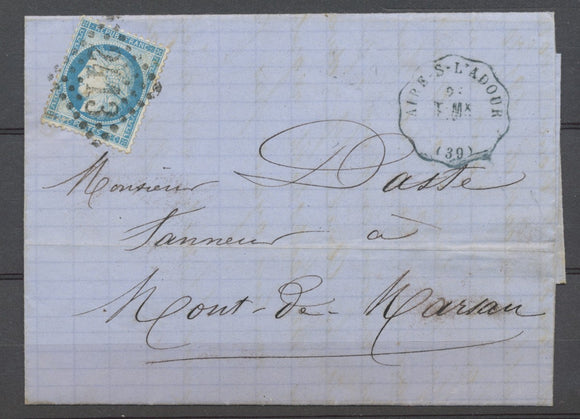 REPUB. FRANC.
AIRE-S-L'ADOUR
T. Mx
(39)
Monsieur Daste
Tanneur à
Mont-de-Marsan